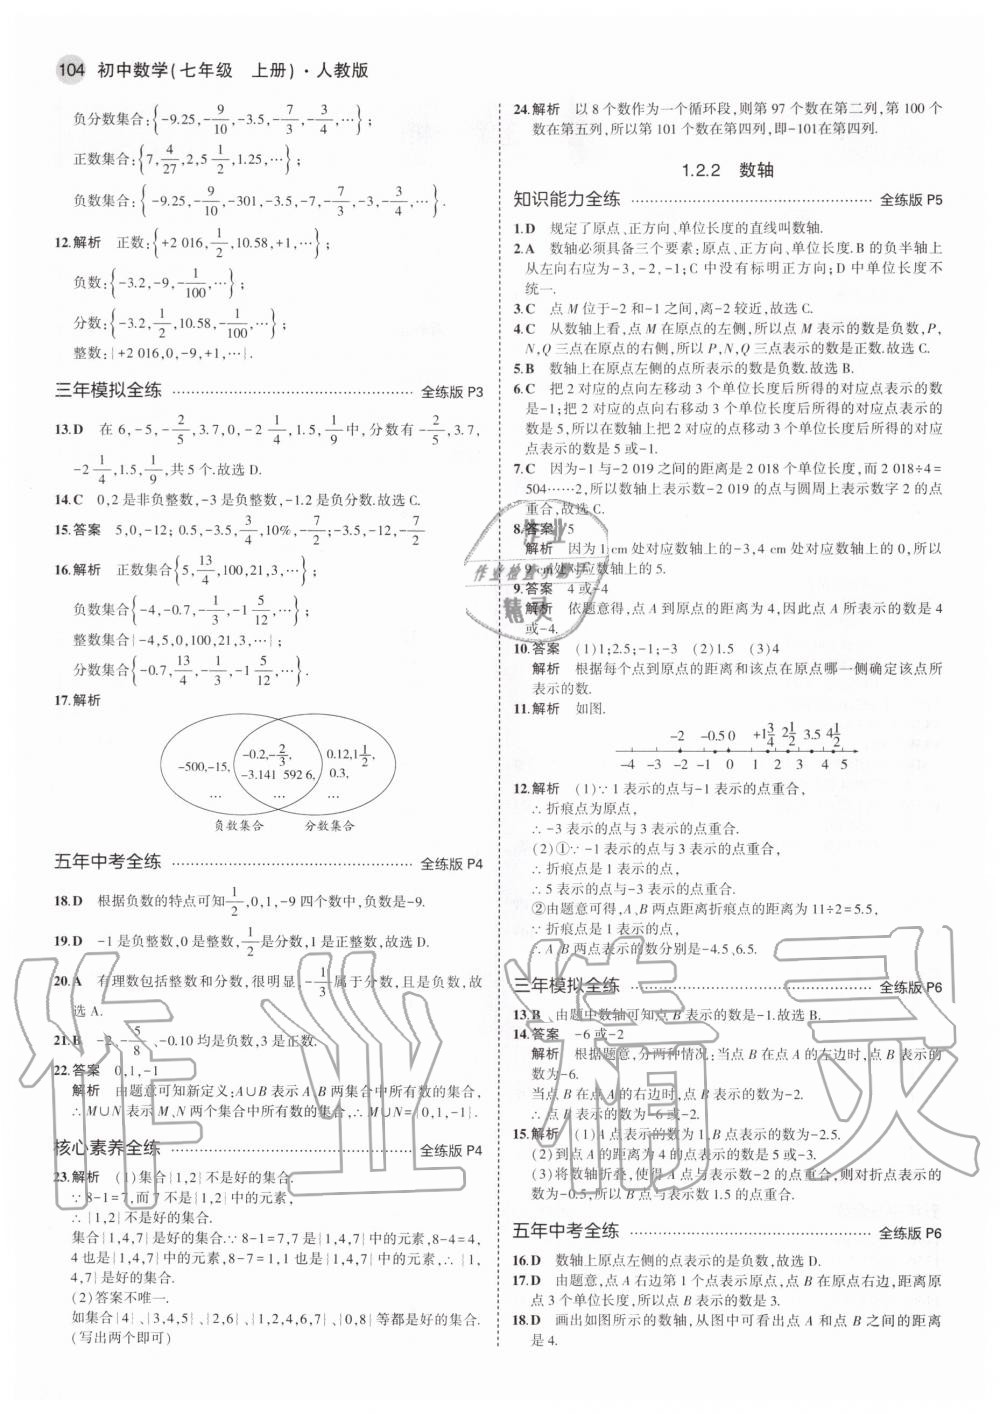 104 初中数学(七年级 上册)·人教版
负分数集合:{-9.25,-9/10,-3.5,-7/3,-3/4,…};
正数集合:{7,4/27,2,5 1/2,1.25,…};
负数集合:{-9.25,-9/10,-301,-3.5,-7,-7/3,-3,-3/4,…}.
12.解析 正数:{+2 016,1/2,10.58,+1,…};
负数:{-3.2,-9,-1/100,…};
分数:{-3.2,1/2,10.58,-1/100,…};
整数:{+2 016,0,-9,+1,…}.
三年模拟全练 全练版 P3
13.D 在 6,-5,-2/5,3.7,0,-2 1/4,1.5,1/9中,分数有-2/5,3.7,
-2 1/4,1.5,1/9,共 5 个.故选 D.
14.C 0,2 是非负整数,-3 是负整数,-1.2 是负分数.故选 C.
15.答案 5,0,-12; 0.5,-3.5,3/4,10%,-7/2;-3.5,-12,-7/2
16.解析 正数集合{5,13/4,100,21,3,…};
负数集合{-4,-0.7,-1/3,-1 5/12,…};
整数集合{-4,5,0,100,21,3,…};
分数集合{-0.7,13/4,-1/3,-1 5/12,…}.
17.解析
-500,-15,
…
-0.2,-2/3,
-3.141 592 6,
…
0.12,1 1/2,
0.3,
…
负数集合 分数集合
五年中考全练 全练版 P4
18.D 根据负数的特点可知1/2,0,1,-9 四个数中,负数是-9.
19.D -1 是负整数,0 是整数,1/2是分数,1 是正整数,故选 D.
20.A 有理数包括整数和分数,很明显,-1/3属于分数,且是负数,故
选 A.
21.B -2,-5/8,-0.10 均是负数,3 是正数.
22.答案 0,1,-1
解析 由题意可知新定义:A∪B 表示 A、B 两集合中所有数的集合,
∴M∪N 表示 M、N 两个集合中所有数的集合,∴M∪N={0,1,-1}.
核心素养全练 全练版 P4
23.解析 (1)集合{1,2}不是好的集合.
∵8-1=7,而 7 不是{1,2}中的元素,
∴{1,2}不是好的集合.
集合{1,4,7}是好的集合.∵8-1=7,7 是{1,4,7}中的元素,8-4=4,
4 也是{1,4,7}中的元素,8-7=1,1 也是{1,4,7}中的元素,∴{1,
4,7}是好的集合.
(2)答案不唯一.
如集合{4}、{3,4,5}、{2,6}、{1,2,4,6,7}、{0,8}等都是好的集合.
(写出两个即可)
24.解析 以 8 个数作为一个循环段,则第 97 个数在第二列,第 100 个
数在第五列,所以第 101 个数在第四列,即-101在第四列.
1.2.2 数轴
知识能力全练 全练版 P5
1.D 规定了原点、正方向、单位长度的直线叫数轴.
2.A 数轴必须具备三个要素:原点、正方向、单位长度.B 的负半轴上
从左向右应为-3,-2,-1;C 中没有标明正方向;D 中单位长度不
统一.
3.C 点 M 位于-2 和-1 之间,离-2 较近,故选 C.
4.C 从数轴上看,点 M 在原点的左侧,所以点 M 表示的数是负数,P,
N,Q 三点在原点的右侧,所以 P,N,Q 三点表示的数是正数.故选 C.
5.B 数轴上在原点左侧的点所表示的数是负数.故选 B.
6.C 把 2 对应的点向左移动 3 个单位长度后所得的对应点表示的数
是-1;把 2 对应的点向右移动 3 个单位长度后所得的对应点表示的
数是 5,所以在数轴上把 2 对应的点移动 3 个单位长度后所得的对应
点表示的数是 5 或-1.
7.C 因为-1 与-2 019 之间的距离是 2 018 个单位长度,而 2 018÷4=
504……2,所以数轴上表示数-2 019 的点与圆周上表示数字 2 的点
重合,故选 C.
8.答案 5
解析 因为 1 cm 处对应数轴上的-3,4 cm 处对应数轴上的 0,所以
9 cm处对应数轴上的 5.
9.答案 4 或-4
解析 依题意得,点 A 到原点的距离为 4,因此点 A 所表示的数是 4
或-4.
10.答案 (1)1;2.5;-1;-3 (2)1.5 (3)4
解析 根据每个点到原点的距离和该点在原点哪一侧确定该点所
表示的数.
11.解析 如图.
-2 -0.5 0 +1 3/4 2 1/2 3.5 4 1/2
-4 -3 -2 -1 0 1 2 3 4 5
12.解析 (1)∵1 表示的点与-1 表示的点重合,
∴折痕点为原点,
∴-3 表示的点与 3 表示的点重合.
(2)①∵-1 表示的点与 3 表示的点重合,
∴折痕点是 1 表示的点,
∴5 表示的点与-3 表示的点重合.
②由题意可得,A、B 两点距离折痕点的距离为 11÷2=5.5,
∵折痕点是 1 表示的点,
∴A、B 两点表示的数分别是-4.5、6.5.
三年模拟全练 全练版 P6
13.B 由题中数轴可知点 B 表示的数是-1.故选 B.
14.答案 -6 或-2
解析 根据题意,分两种情况:当点 B 在点 A 的左边时,点 B 表示的
数为-6.
当点 B 在点 A 的右边时,点 B 表示的数为-2.
∴点 B 表示的数为-6 或-2.
15.解析 (1)A 点表示的数为 1,B 点表示的数为-2.5.
(2)到点 A 的距离为 4 的点表示的数为-3 或 5.
(3)将数轴折叠,使得 A 点与表示数-2 的点重合,则对折点表示的
数为-0.5,所以 B 点与表示数 1.5 的点重合.
五年中考全练 全练版 P6
16.D 数轴上原点左侧的点表示的是负数,故选 D.
17.D 由题意,点 A 右边第 1 个点表示原点,点 B 在原点右边,距离原
点 3 个单位长度,所以点 B 表示的数是 3.
18.D 画出如图所示的数轴,从图中可看出点 A 和点 B 之间的距离
是 4.
作业
作业检查小助手
精灵
作业精灵